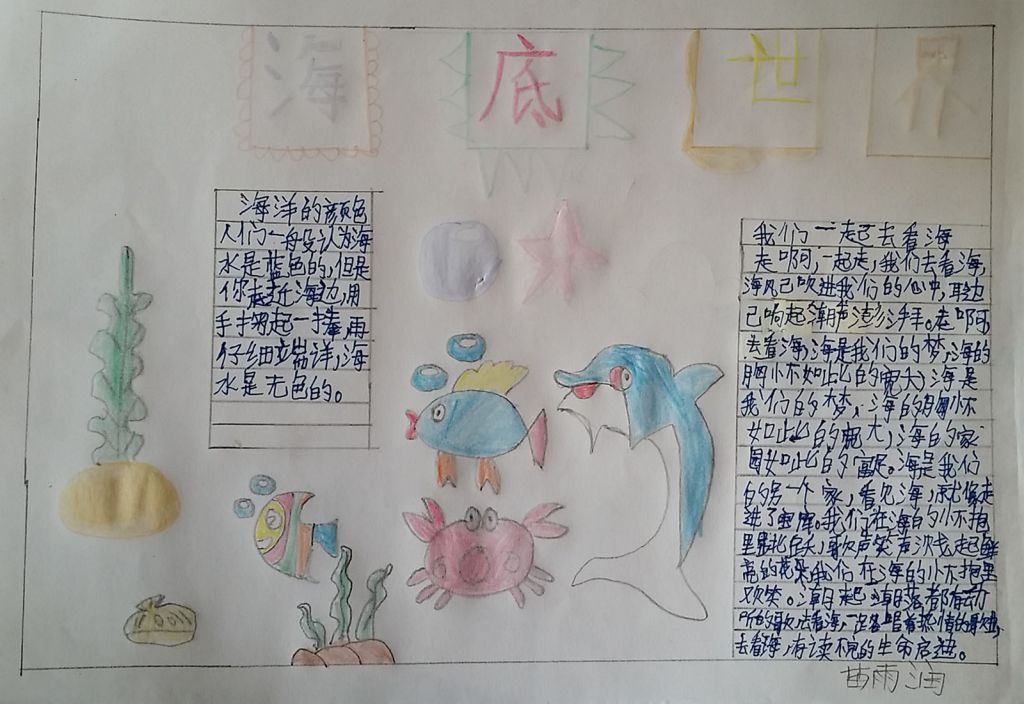 海底世界
海洋的颜色
人们一般认为海
水是蓝色的,但是
你走近海边,用
手捧起一捧,再
仔细端详,海
水是无色的。
我们一起去看海
走啊,一起走,我们去看海,
海风已吹进我们的心中,耳边
已响起潮声澎湃。走啊
去看海,海是我们的梦,海的
胸怀如此的宽大,海是
我们的梦,海的胸怀
如此的宽大,海的家
园如此的富足。海是我们
的另一个家,看见海,就像走
进了宝库。我们在海的怀抱
里 歌声笑声 起
的 我们在海的怀抱里
欢笑。潮起潮落都有
的歌,去看海,一 着热情的
去看海,有读不完的生命启迪。
苗雨润